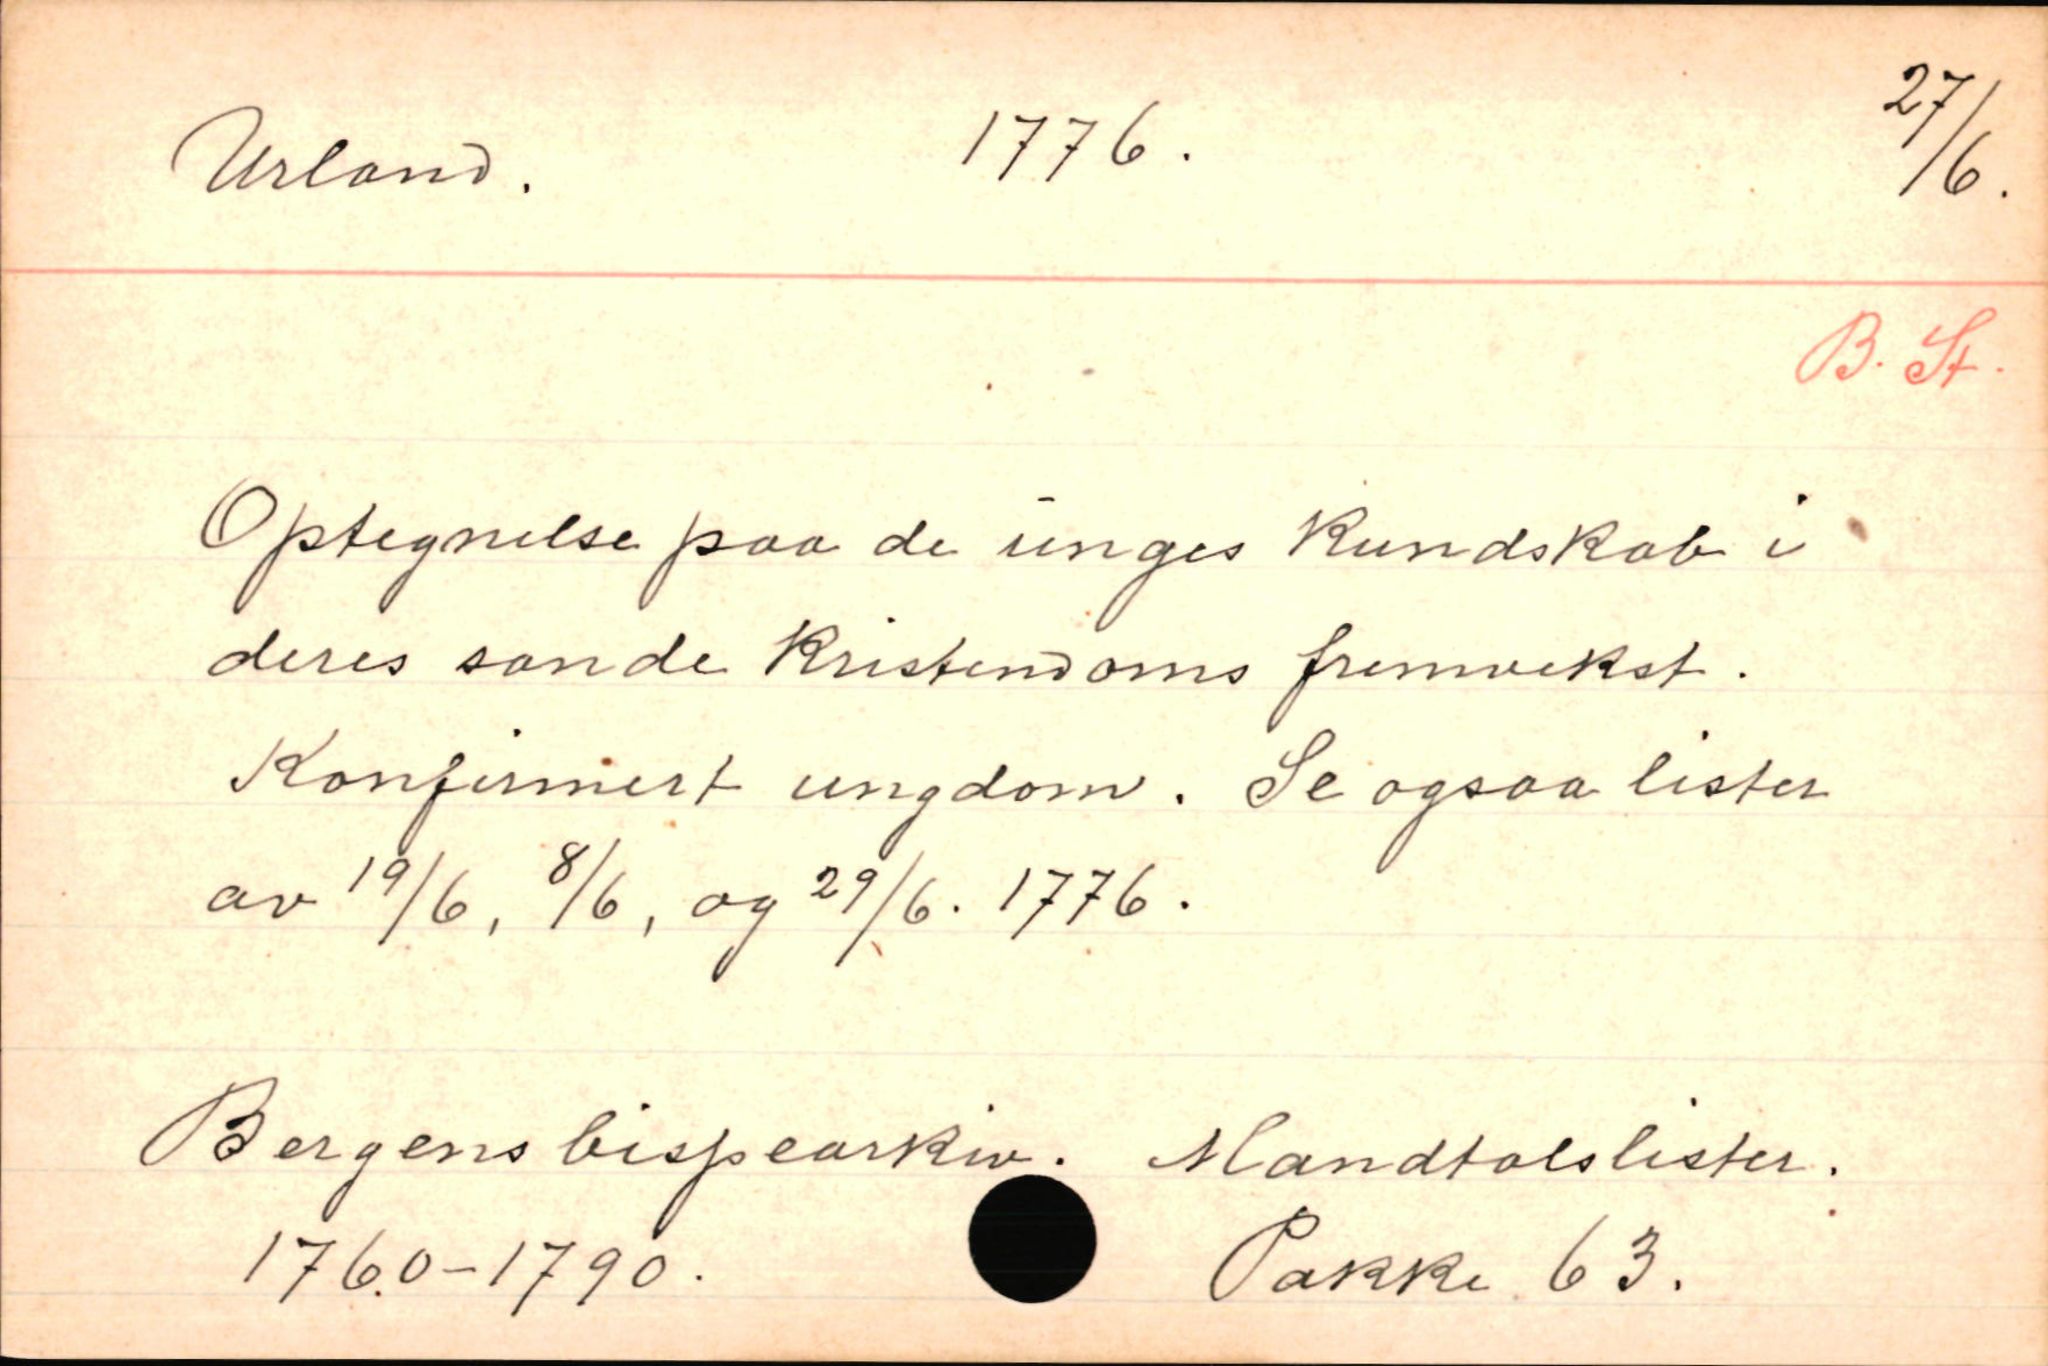 Urland. 1776. 27/6.
B. St.
Optegnelse paa de unges kundskab i
deres sande kristendoms fremvekst.
Konfirmert ungdom. Se ogsaa lister
av 19/6, 8/6, og 29/6. 1776.
Bergens bispearkiv. Mandtalslister.
1760-1790. Pakke 63.